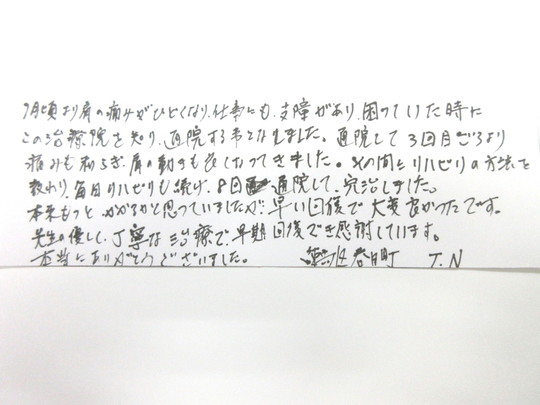 7月頃より肩の痛みがひどくなり、仕事にも、支障があり、困っていた時に
この治療院を知り、通院する事となりました。通院して3回目ごろより
痛みも和らぎ、肩の動きも良くなってきました。その間にリハビリの方法を
教わり、毎日リハビリも続け、8回 通院して、完治しました。
本来もっとかかるかと思っていましたが、早い回復で大変良かったです。
先生の優しく、丁寧な治療で、早期回復でき感謝しています。
本当にありがとうございました。 練馬区春日町 T.N